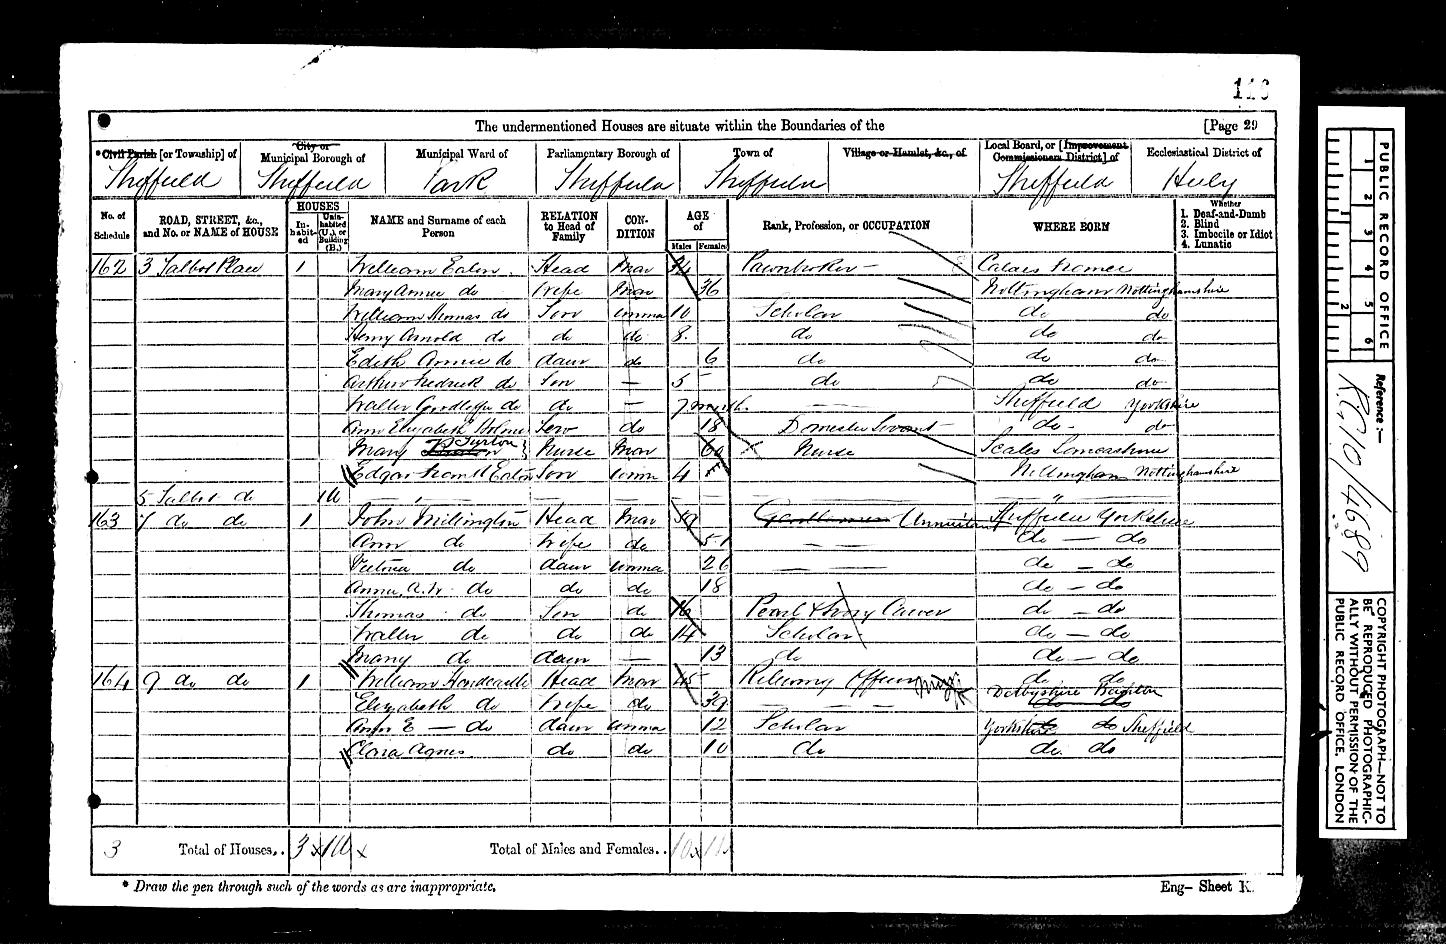 116
The undermentioned Houses are situate within the Boundaries of the [Page 29
*Civil Parish [or Township] of City or Municipal Borough of Municipal Ward of Parliamentary Borough of Town of Village or Hamlet, &c., of Local Board, or [Improvement Commissioners District] of Ecclesiastical District of
Sheffield Sheffield Park Sheffield Sheffield Sheffield Heely
No. of Schedule ROAD, STREET, &c., and No. or NAME of HOUSE HOUSES Inhabited Uninhabited (U.), or Building (B.) NAME and Surname of each Person RELATION to Head of Family CONDITION AGE of Males Females Rank, Profession, or OCCUPATION WHERE BORN Whether 1. Deaf-and-Dumb 2. Blind 3. Imbecile or Idiot 4. Lunatic
162 3 Talbot Place 1 William Eaton Head Mar 34 Pawnbroker Calais
Mary Annie do Wife Mar 36 Nottingham Nottinghamshire
William Thomas do Son unma 10 Scholar do do
Henry Arnold do do do 8 do do do
Edith Annie do daur do 6 do do do
Arthur Fredrick do Son — 5 do do do
Walter do do — 7 month Sheffield Yorkshire
Ann Elizabeth Holmes Serv do 18 Domestic Servant do do
Mary Turton Nurse Mar 60 Nurse Scales
Edgar Eaton Son unm 4 Nottingham Nottinghamshire
5 Talbot do 1U
163 7 do do 1 John Millington Head Mar 59 Annuitant Sheffield Yorkshire
Ann do Wife do 51 do — do
do daur unma 26 do — do
Anna do do do 18 do — do
Thomas do Son do 16 Pearl & Ivory Carver do — do
Walter do do do 14 Scholar do — do
Mary do daur — 13 do do — do
164 9 do do 1 William Hardcastle Head Mar 45 Relieving Officer do do
Elizabeth do Wife do 39 Derbyshire do do
Ann E — do daur unma 12 Scholar Yorkshire do Sheffield
Clara Agnes do do 10 do do do
3 Total of Houses.. 3 1U Total of Males and Females.. 10 11
* Draw the pen through such of the words as are inappropriate. Eng- Sheet K.
PUBLIC RECORD OFFICE
1 2 3 4 5 6
1 2
Reference:—
RG10/4689
COPYRIGHT PHOTOGRAPH—NOT TO BE REPRODUCED PHOTOGRAPHICALLY WITHOUT PERMISSION OF THE PUBLIC RECORD OFFICE, LONDON